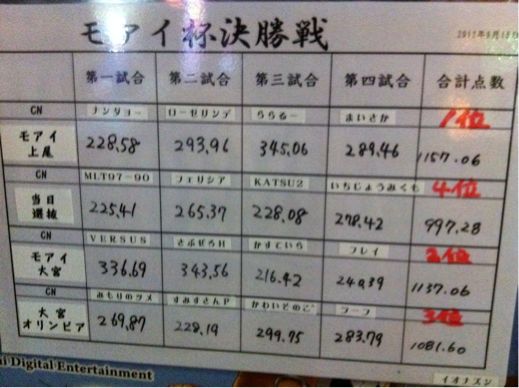 モアイ杯決勝戦
第一試合 第二試合 第三試合 第四試合 合計点数
CN ナンジョー ローゼリンデ ららるー まいさか 1位
モアイ上尾 228.58 293.96 345.06 289.46 1157.06
CN MLT97-90 フェリシア KATSU2 いちじょうみくも 4位
当日選抜 225.41 265.37 228.08 278.42 997.28
CN VERSUS さぶぜろH かすていら フレイ 2位
モアイ大宮 336.69 343.56 216.42 240.39 1137.06
CN みもりのツメ すみすさんP かわいそのこ フーフ 3位
大宮オリンピア 269.87 228.19 299.75 283.79 1081.60
Digital Entertainment
イオナズン